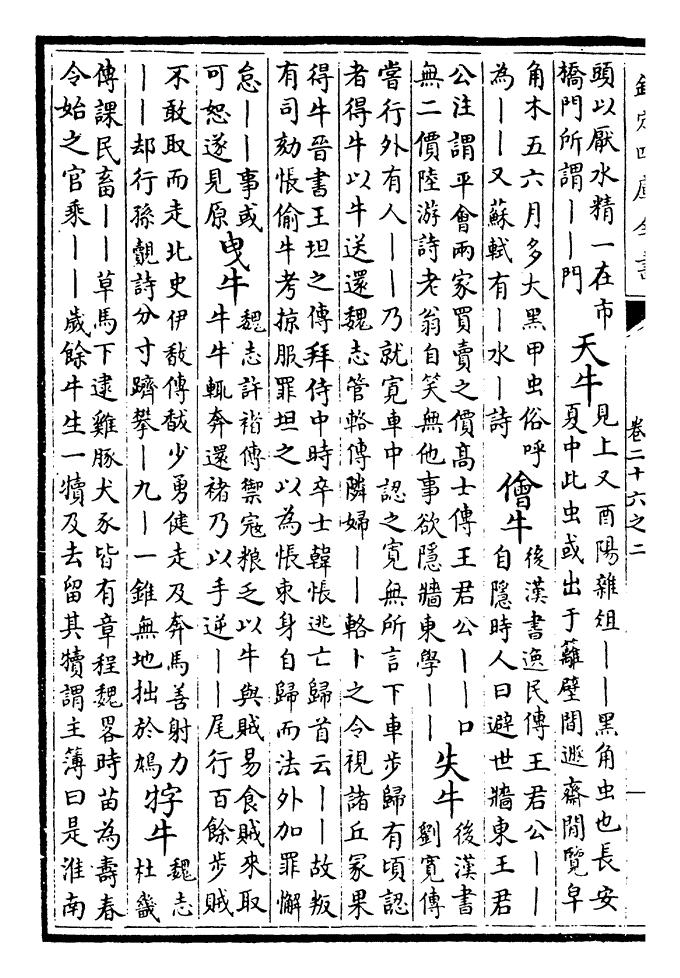 欽定四庫全書
卷二十六之二
一
頭以厭水精一在市
橋門所謂——門
天牛
見上又酉陽雜俎——黑角虫也長安
夏中此虫或出于蘺壁間遯齋閒覽皁
角木五六月多大黑甲虫俗呼
為——又蘇軾有—水—詩
儈牛
後漢書逸民傳王君公——
自隱時人曰避世牆東王君
公注謂平會兩家買賣之價高士傳王君公——口
無二價陸游詩老翁自笑無他事欲隱牆東學——
失牛
後漢書
劉寛傳
嘗行外有人——乃就寛車中認之寛無所言下車步歸有頃認
者得牛以牛送還魏志管輅傳隣婦——輅卜之令視諸丘冡果
得牛晉書王坦之傳拜侍中時卒士韓悵逃亡歸首云——故叛
有司劾悵偷牛考掠服罪坦之以為悵束身自歸而法外加罪懈
怠——事或
可恕遂見原
曳牛
魏志許褚傳禦宼粮乏以牛與賊易食賊來取
牛牛輒奔還褚乃以手逆——尾行百餘步賊
不敢取而走北史伊馛傳馛少勇健走及奔馬善射力
——却行孫覿詩分寸躋攀—九—一錐無地拙於鳩
牸牛
魏志
杜畿
傳課民畜——草馬下逮雞豚犬豕皆有章程魏畧時苗為壽春
令始之官乘——歲餘牛生一犢及去留其犢謂主簿曰是淮南